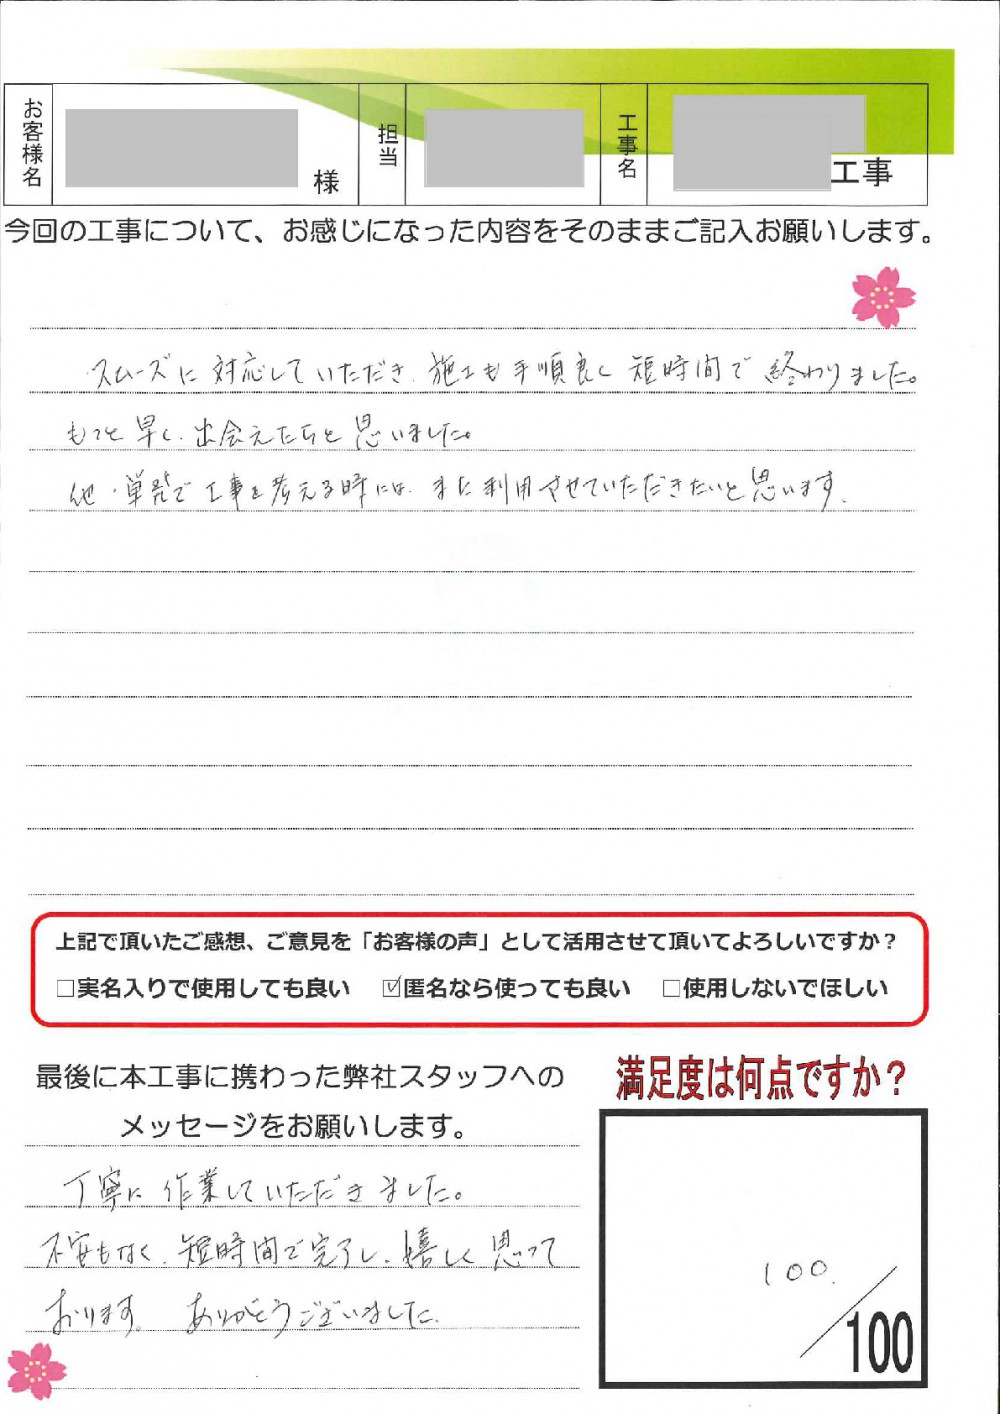 お客様名
様
担当
工事名
工事
今回の工事について、お感じになった内容をそのままご記入お願いします。
スムーズに対応していただき、施工も手順良く短時間で終わりました。
もっと早く、出会えたらと思いました。
他・単発で工事を考える時には、また利用させていただきたいと思います。
上記で頂いたご感想、ご意見を「お客様の声」として活用させて頂いてよろしいですか？
□実名入りで使用しても良い ☑匿名なら使っても良い □使用しないでほしい
最後に本工事に携わった弊社スタッフへの
メッセージをお願いします。
丁寧に作業していただきました。
不安もなく、短時間で完了し、嬉しく思って
おります。ありがとうございました。
満足度は何点ですか？
100.
/100